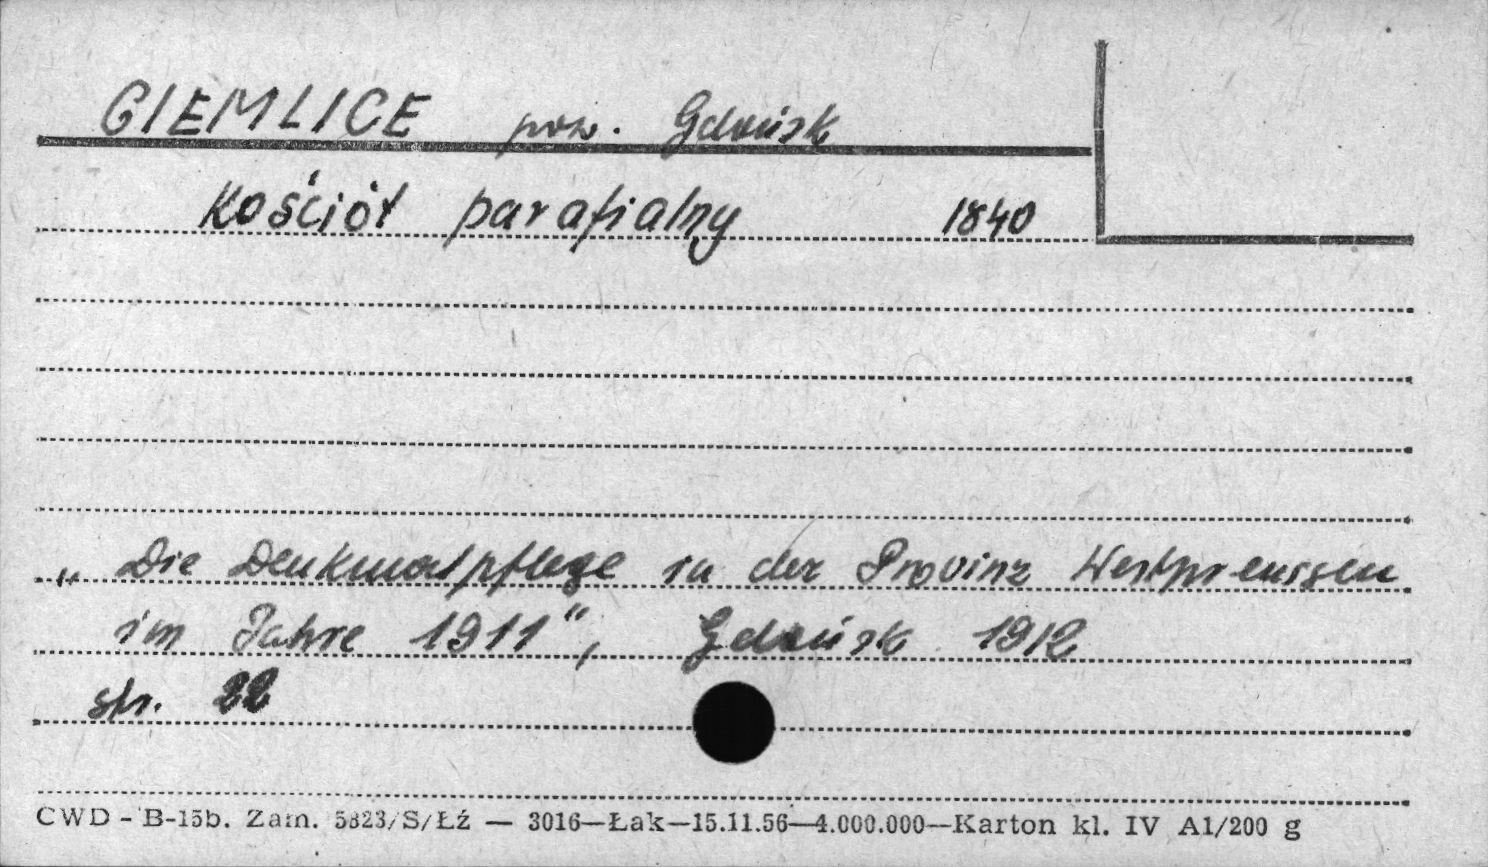 GIEMLICE pow. Gdańsk
Kościół parafialny 1840
„Die Denkmalpflege in der Provinz Westpreussen
im Jahre 1911", Gdańsk 1912
str. 22
CWD - B-15b. Zam. 5823/S/Łź — 3016—Łak—15.11.56—4.000.000—Karton kl. IV A1/200 g